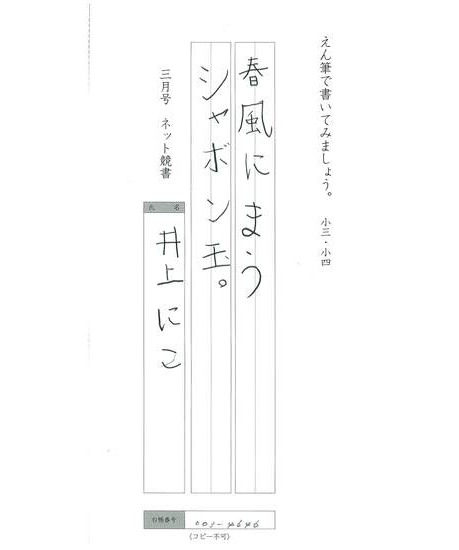 えん筆で書いてみましょう。 小三・小四
春風にまう
シャボン玉。
三月号 ネット競書
氏名
井上にこ
(コピー不可)